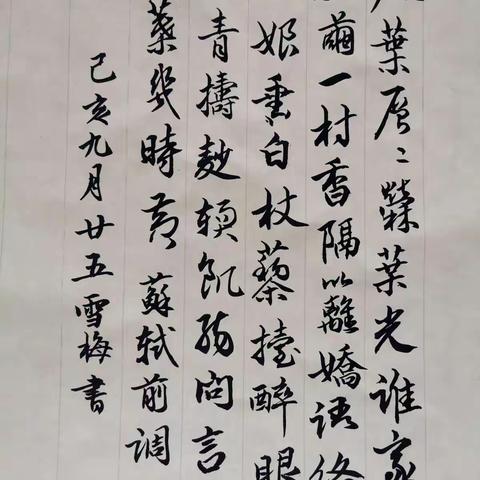 葉層〻檾葉光誰家
繭一村香隔以離嬌語络
娘垂白杖藜擡醉眼
青擣麨软飢腸问言
葉幾時黄 蘇轼前调
己亥九月廿五雪梅書